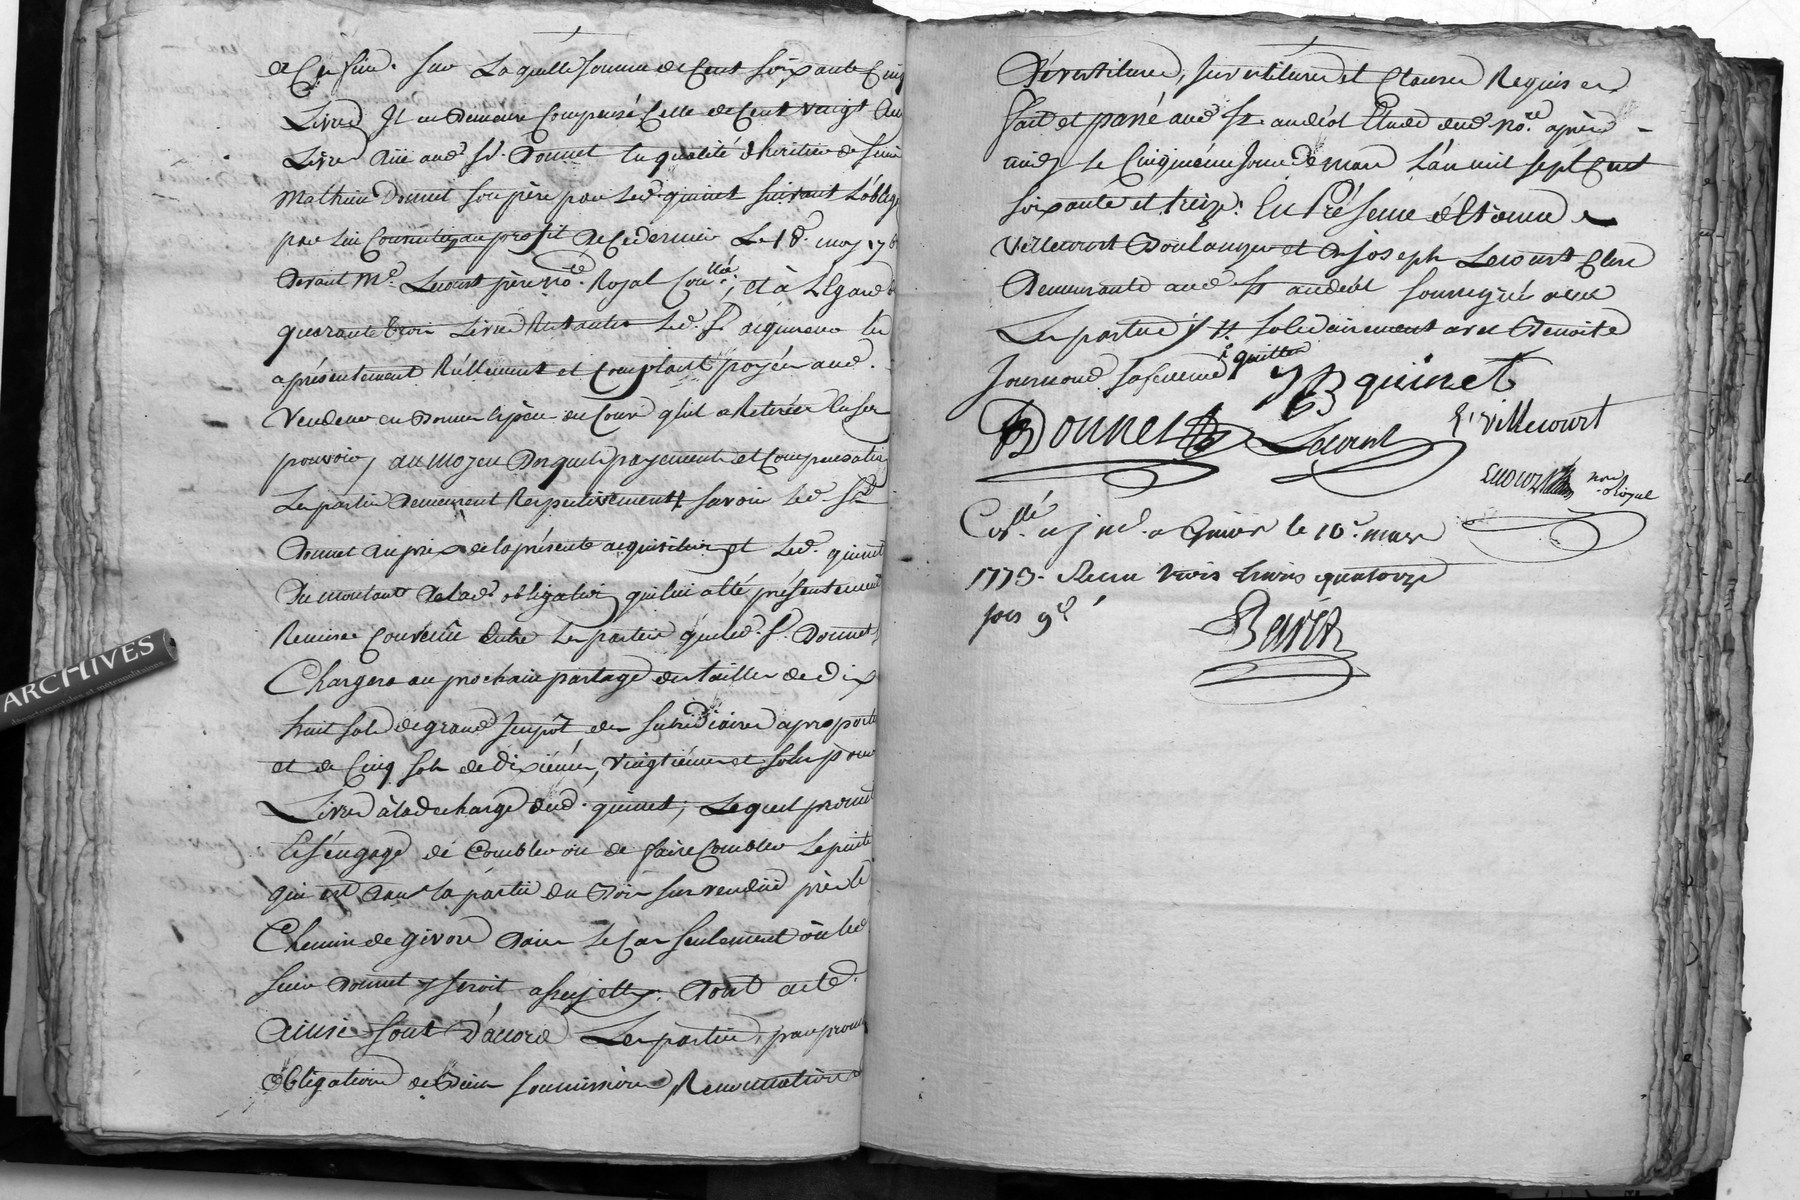 de Cens sur Laquelle somme de Cent soixante Cinq
Livres Il en Demeure Compensé Celle de Cent vingt deux
Livres due aud. Sr. Donnet en qualité d'heritier de feu
Mathieu Donnet son père par Led. quinet suivant L'oblig.
par lui Consentie au profit de Ce dernier Le 18. may 176
Devant Me. Lecourt père no.re Royal Con.llé; et à L'Egard de
quarante trois Livres Restantes Led. Sr. acquereur les
a présentement Réellement et Comptant payées aud.
Vendeur en Bonnes Espèces du Cours qu'il a Retirées en son
pouvoir, au moyen Desquels payements et Compensation
Les parties Demeurent Respectivement savoir led. Sr.
Donnet du prix de la présente acquisition et Led. quinet
Du montant de lad. obligation qui lui a été présentement
Remise Convenu Entre Les parties que led. Sr. Donnet
Chargera au prochain partage des tailles de dix
huit sols de grand Impôt des subsidiaires a proportion
et de Cinq sols de dixième, vingtième et sols pour
Livre à la décharge dud. quinet; Lequel promet
Et s'engage de Combler ou de faire Combler Le puits
qui est dans la partie du Bois sus vendue près le
Chemin de givors dans Le Cas seulement où led.
sieur Donnet y seroit assujetty. Dont acte.
Ainsi sont D'accord Les parties, par promesse
Obligation de Biens soumission, Renonciations
Dévestiture, Investiture et Clauses Requises
fait et passé aud. St. andéol Etude dud. no.re après
midy Le Cinquième Jour de mars L'an mil sept Cent
soixante et treize: En Présence d'Etienne
Villecourt Boulanger et de joseph Lecourt Clerc
Demeurants aud. St andéol soussignés avec
Les parties solidairement avec Benoite
Journoud sa femme
quittes
JB quinet
Donnet
Lecourt
E. Villecourt
Lecourt no.re Royal
Con.llé a givors le 10. mars
1773. Recu trois livres quatorze
sols 9d